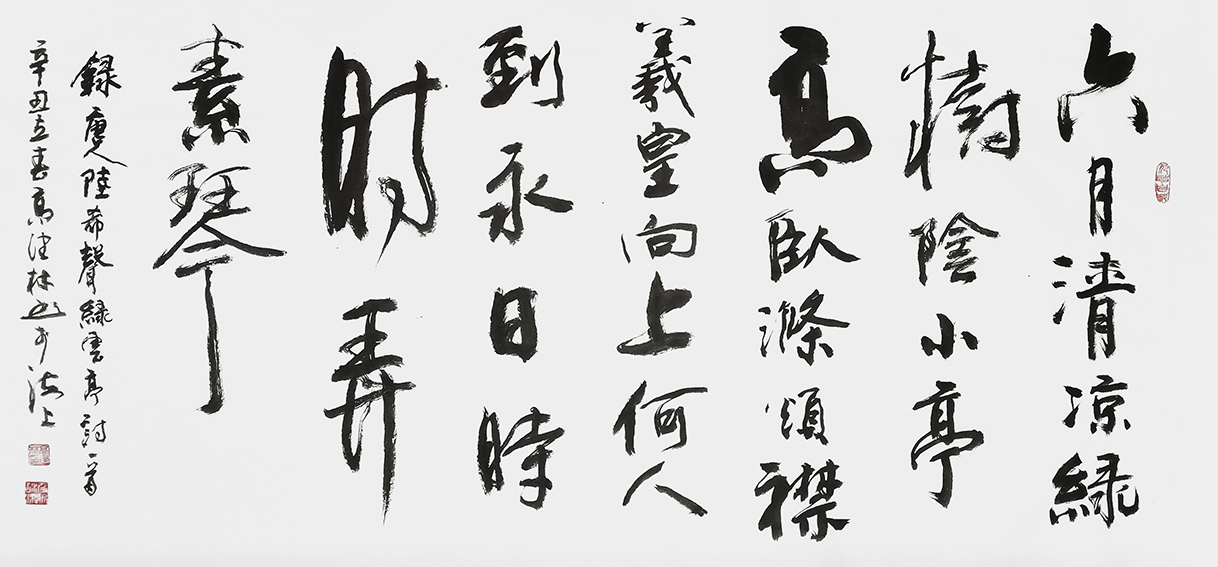 六月清凉緑
樹陰小亭
高臥滌煩襟
羲皇向上何人
到永日時
时弄
素琴
録唐人陸希聲緑雲亭詩一首
辛丑立春高林書於海上